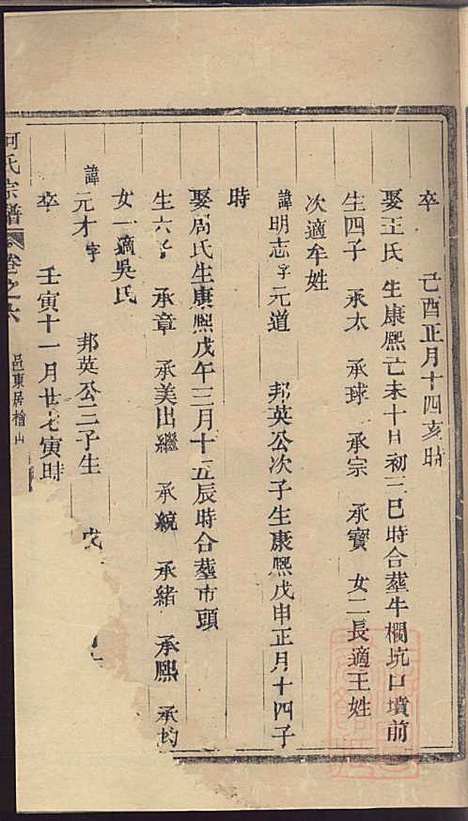 卒 己酉正月十四亥時
娶王氏 生康熙己未十月初三巳時合塟牛欄坑口墳前
生四子 承太 承球 承宗 承寳 女二長適王姓
次適牟姓
諱明志字元道 邦英公次子生康熙戊申正月十四子
時
娶周氏生康熙戊午三月十五辰時合塟市頭
生六子 承章 承美出繼 承統 承緒 承熙 承均
女一適吳氏
諱元才字 邦英公三子生 戊
卒 壬寅十一月廿七寅時
何氏宗譜 卷之六 邑東居檜山